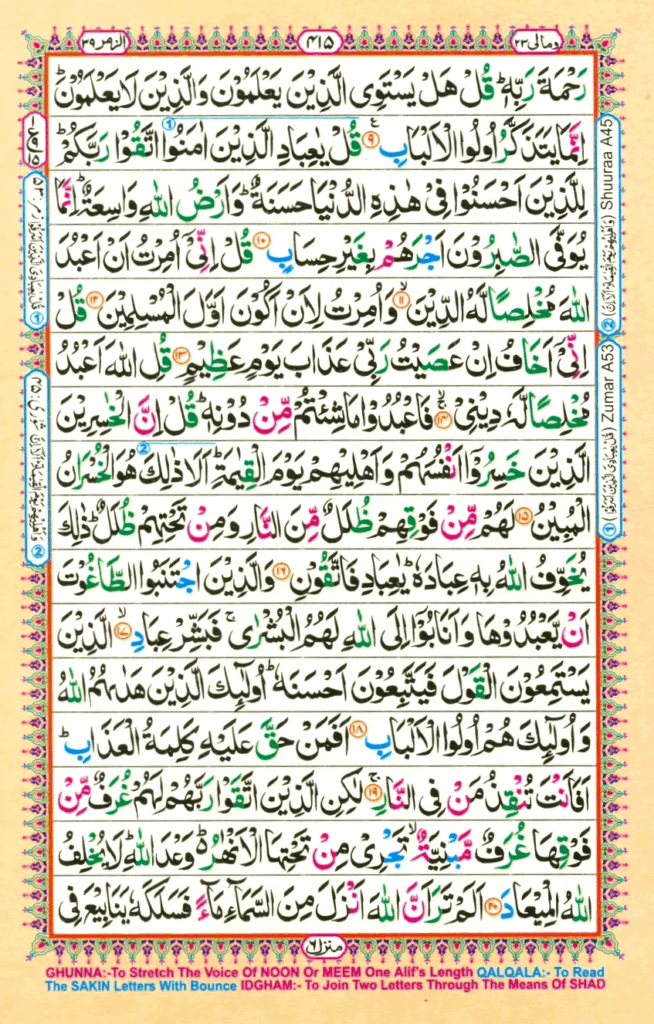 ومالى ٢٣
٤١٥
الزمر ٣٩
رَحْمَةَ رَبِّهٖ ؕ قُلْ هَلْ يَسْتَوِى الَّذِيْنَ يَعْلَمُوْنَ وَالَّذِيْنَ لَا يَعْلَمُوْنَ ؕ
اِنَّمَا يَتَذَكَّرُ اُولُوا الْاَلْبَابِ ۹ قُلْ يٰعِبَادِ الَّذِيْنَ اٰمَنُوا اتَّقُوْا رَبَّكُمْ ؕ
لِلَّذِيْنَ اَحْسَنُوْا فِىْ هٰذِهِ الدُّنْيَا حَسَنَةٌ ؕ وَاَرْضُ اللّٰهِ وَاسِعَةٌ ؕ اِنَّمَا
يُوَفَّى الصّٰبِرُوْنَ اَجْرَهُمْ بِغَيْرِ حِسَابٍ ۱۰ قُلْ اِنِّىْۤ اُمِرْتُ اَنْ اَعْبُدَ
اللّٰهَ مُخْلِصًا لَّهُ الدِّيْنَ ۱۱ وَاُمِرْتُ لِاَنْ اَكُوْنَ اَوَّلَ الْمُسْلِمِيْنَ ۱۲ قُلْ
اِنِّىْۤ اَخَافُ اِنْ عَصَيْتُ رَبِّىْ عَذَابَ يَوْمٍ عَظِيْمٍ ۱۳ قُلِ اللّٰهَ اَعْبُدُ
مُخْلِصًا لَّهٗ دِيْنِىْ ۱۴ فَاعْبُدُوْا مَا شِئْتُمْ مِّنْ دُوْنِهٖ ؕ قُلْ اِنَّ الْخٰسِرِيْنَ
الَّذِيْنَ خَسِرُوْۤا اَنْفُسَهُمْ وَاَهْلِيْهِمْ يَوْمَ الْقِيٰمَةِ ؕ اَلَا ذٰلِكَ هُوَ الْخُسْرَانُ
الْمُبِيْنُ ۱۵ لَهُمْ مِّنْ فَوْقِهِمْ ظُلَلٌ مِّنَ النَّارِ وَمِنْ تَحْتِهِمْ ظُلَلٌ ؕ ذٰلِكَ
يُخَوِّفُ اللّٰهُ بِهٖ عِبَادَهٗ ؕ يٰعِبَادِ فَاتَّقُوْنِ ۱۶ وَالَّذِيْنَ اجْتَنَبُوا الطَّاغُوْتَ
اَنْ يَّعْبُدُوْهَا وَاَنَابُوْۤا اِلَى اللّٰهِ لَهُمُ الْبُشْرٰى ۚ فَبَشِّرْ عِبَادِ ۱۷ الَّذِيْنَ
يَسْتَمِعُوْنَ الْقَوْلَ فَيَتَّبِعُوْنَ اَحْسَنَهٗ ؕ اُولٰٓئِكَ الَّذِيْنَ هَدٰىهُمُ اللّٰهُ
وَاُولٰٓئِكَ هُمْ اُولُوا الْاَلْبَابِ ۱۸ اَفَمَنْ حَقَّ عَلَيْهِ كَلِمَةُ الْعَذَابِ ؕ
اَفَاَنْتَ تُنْقِذُ مَنْ فِى النَّارِ ۱۹ لٰكِنِ الَّذِيْنَ اتَّقَوْا رَبَّهُمْ لَهُمْ غُرَفٌ مِّنْ
فَوْقِهَا غُرَفٌ مَّبْنِيَّةٌ ۙ تَجْرِىْ مِنْ تَحْتِهَا الْاَنْهٰرُ ؕ وَعْدَ اللّٰهِ ؕ لَا يُخْلِفُ
اللّٰهُ الْمِيْعَادَ ۲۰ اَلَمْ تَرَ اَنَّ اللّٰهَ اَنْزَلَ مِنَ السَّمَآءِ مَآءً فَسَلَكَهٗ يَنَابِيْعَ فِى
② Shuuraa A45
① Zumar A53
منزل ٦
GHUNNA:-To Stretch The Voice Of NOON Or MEEM One Alif's Length QALQALA:- To Read
The SAKIN Letters With Bounce IDGHAM:- To Join Two Letters Through The Means Of SHAD